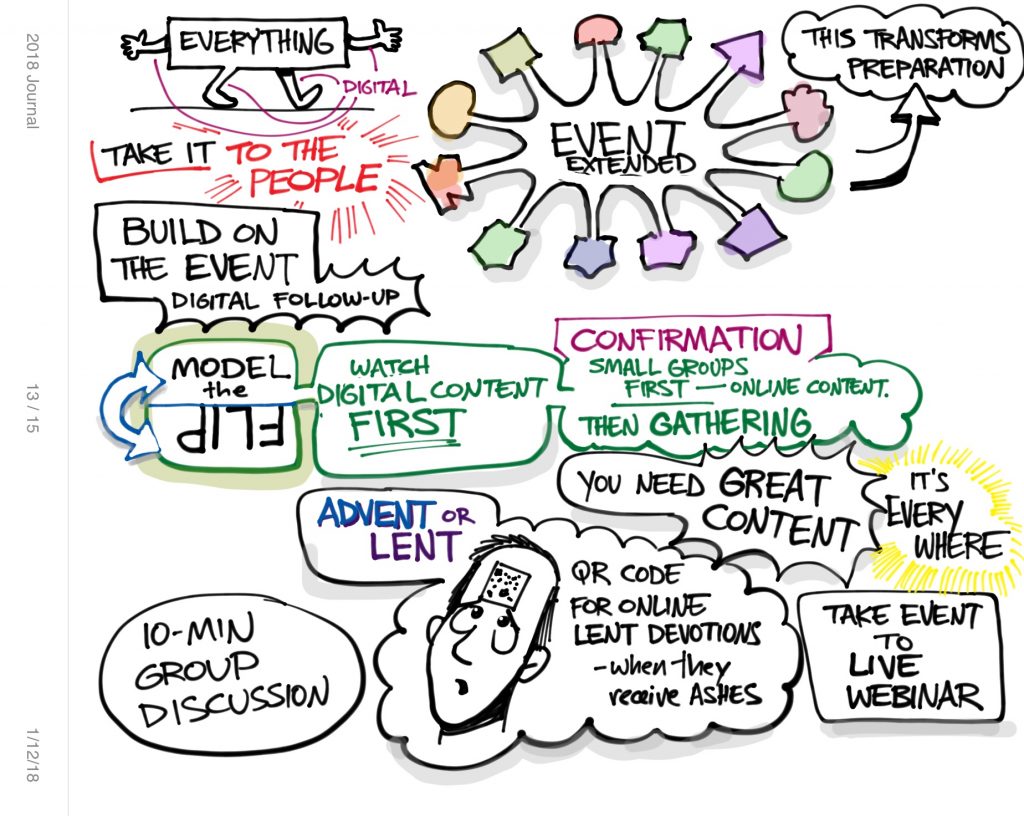 2018 Journal
13 / 15
1/12/18
EVERYTHING
DIGITAL
TAKE IT TO THE
PEOPLE
EVENT
EXTENDED
THIS TRANSFORMS
PREPARATION
BUILD ON
THE EVENT
DIGITAL FOLLOW-UP
MODEL
the
FLIP
WATCH
DIGITAL CONTENT
FIRST
CONFIRMATION
SMALL GROUPS
FIRST — ONLINE CONTENT.
THEN GATHERING
YOU NEED GREAT
CONTENT
IT'S
EVERY
WHERE
ADVENT OR
LENT
QR CODE
FOR ONLINE
LENT DEVOTIONS
-when they
receive ASHES
10-MIN
GROUP
DISCUSSION
TAKE EVENT
TO
LIVE
WEBINAR